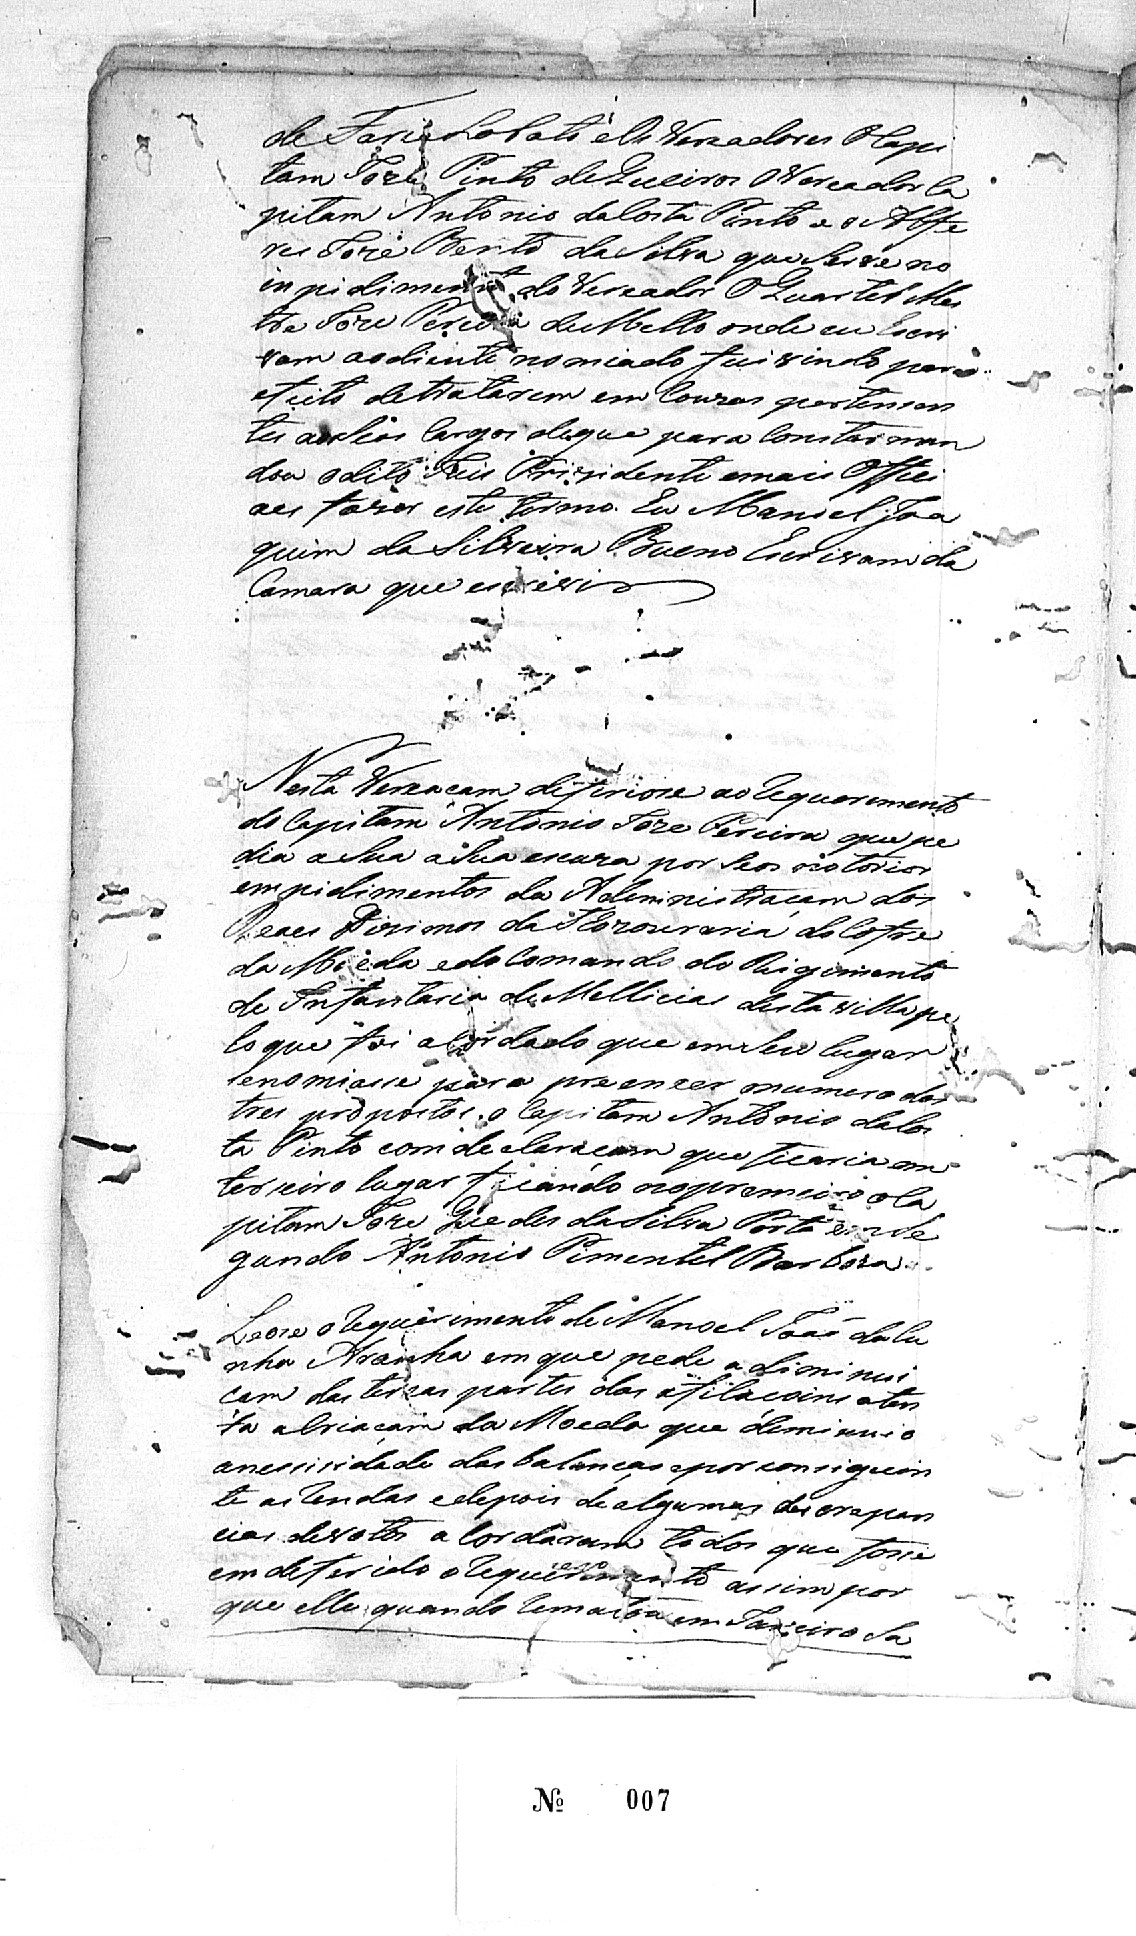 de Faria Lobato e Os Vereadores O Capi
tam Joze Pinto de Queiros O Vereador Ca
pitam Antonio da Costa Pinto e o Alfe
res Joze Bento da Silva que Serve no
inpidimento do Vereador O Quartel Mes
tre Joze Pereira de Mello onde eu Escri
vam aodiente nomiado fui vindo para
efeito detratarem em Couzas pertensen
tes aos Seos Cargos deque para Constar man
dou o dito Juis Prizidente e mais Offici
aes fazer este termo. Eu Manoel Joa
quim da Silveira Bueno Escrivam da
Camara que escrevi
Nesta Vereacam defiriose ao Requerimento
do Capitam Antonio Joze Pereira que pe
dia a Sua a Sua escuza por Seos notorios
empidimentos da Administracam dos
Reaes Dizimos da Thezouraria do Cofre
da Moeda e do Comando do Rigimento
de Infantaria de Mellicias desta villa pe
lo que foi acordado que em Seu lugar
senomiasse para preenxer onumero dos
tres propostos o Capitam Antonio da Cos
ta Pinto com declaracam que ficaria em
terseiro lugar ficando no premeiro o Ca
pitam Joze Guedes da Silva Porto em Se
gundo Antonio Pimentel Barboza
Leose o Requerimento de Manoel João da Cu
nha Aranha em que pede a diminui
cam das terças partes das afilacoins aten
ta a briacam da Moeda que deminuio
anecissidade das balancas epor consiguin
te as Rendas e depois de algumas descrepan
cias devotos acordaram todos que fosse
em deferido o Requerimento assim por
que elle quando Rematou em Janeiro Sa
№ 007